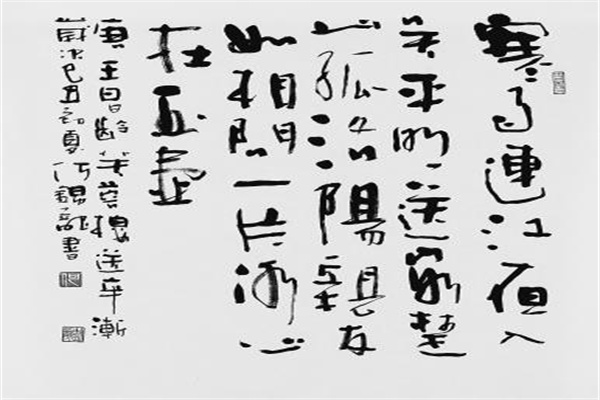 寒雨連江夜入
吳平明送客楚
山孤洛陽親友
如相問一片冰心
在玉壺
王昌齡芙蓉樓送辛漸
歲次己丑初夏何錫書